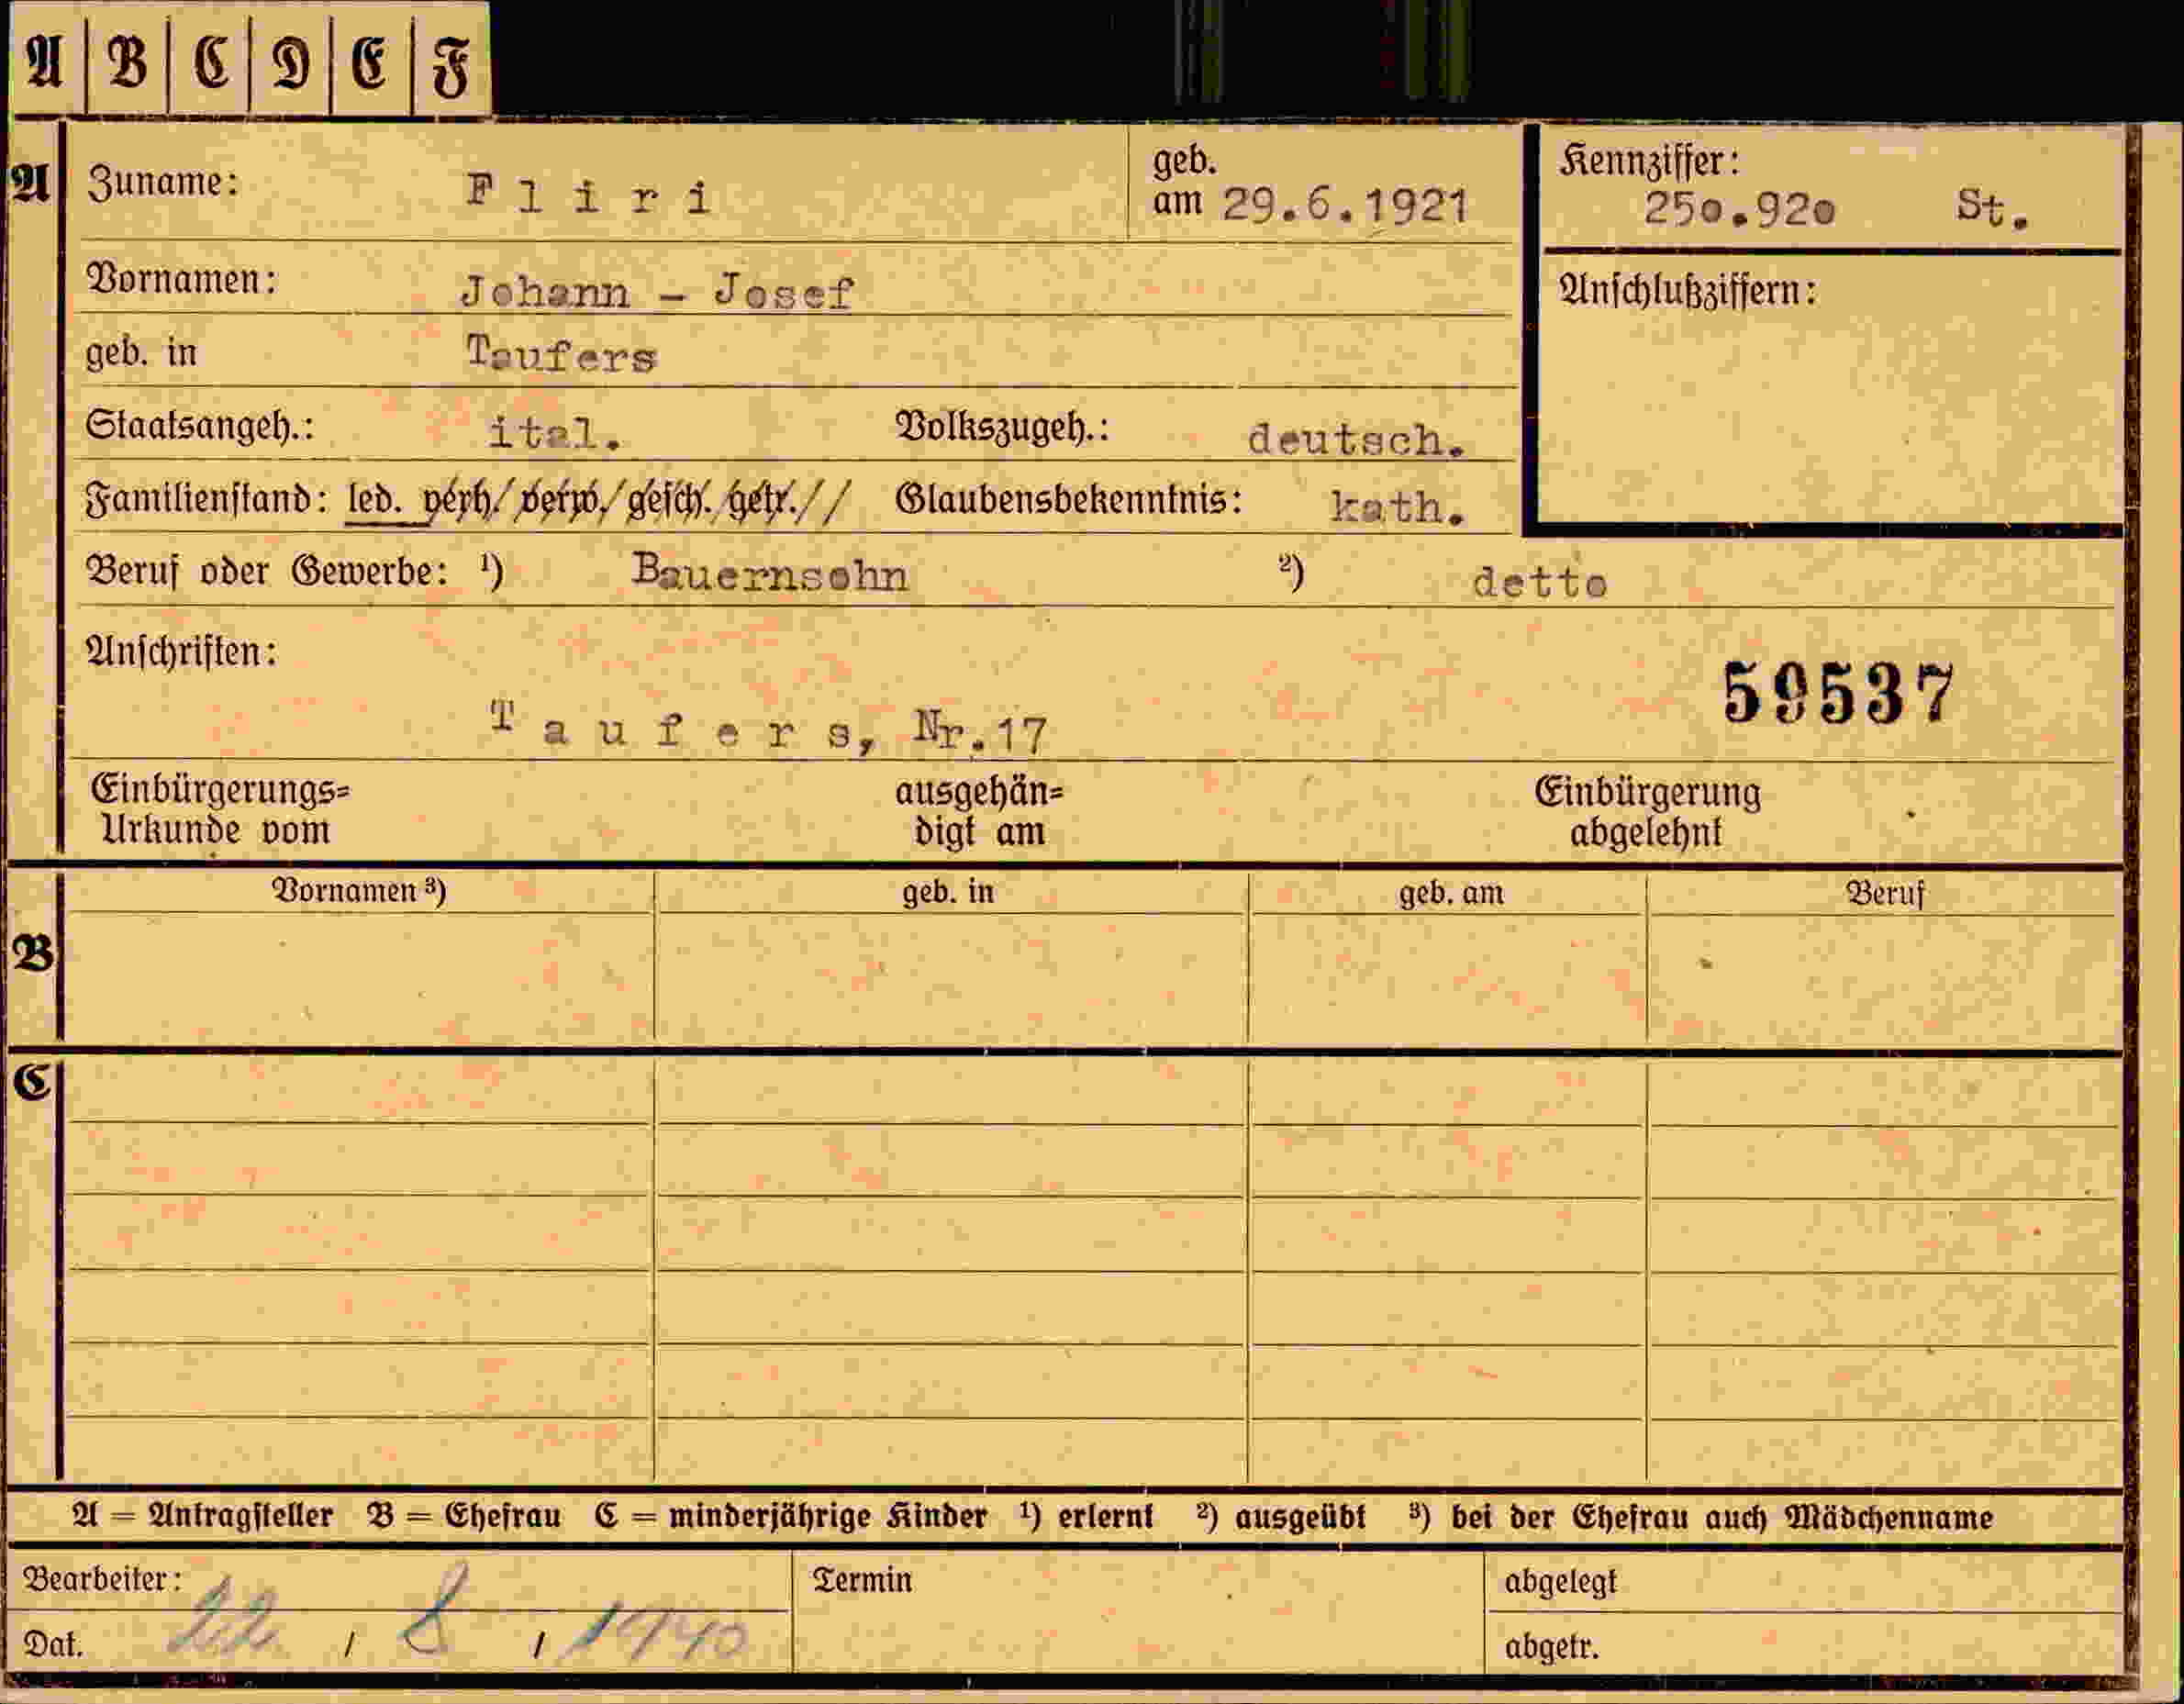 A B C D E F
A Zuname: Fliri geb. am 29.6.1921 Kennziffer: 250.920 St.
Vornamen: Johann - Josef Anschlußziffern:
geb. in Taufers
Staatsangeh.: ital. Volkszugeh.: deutsch.
Familienstand: led. verh./ verw./ gesch./ getr.// Glaubensbekenntnis: kath.
Beruf oder Gewerbe: ¹) Bauernsohn ²) detto
Anschriften:
59537
Taufers, Nr.17
Einbürgerungs= ausgehän= Einbürgerung
Urkunde vom digt am abgelehnt
Vornamen ³) geb. in geb. am Beruf
B
C
A = Antragsteller B = Ehefrau C = minderjährige Kinder ¹) erlernt ²) ausgeübt ³) bei der Ehefrau auch Mädchenname
Bearbeiter: Termin abgelegt
Dat. 22 / 8 / 1940 abgetr.